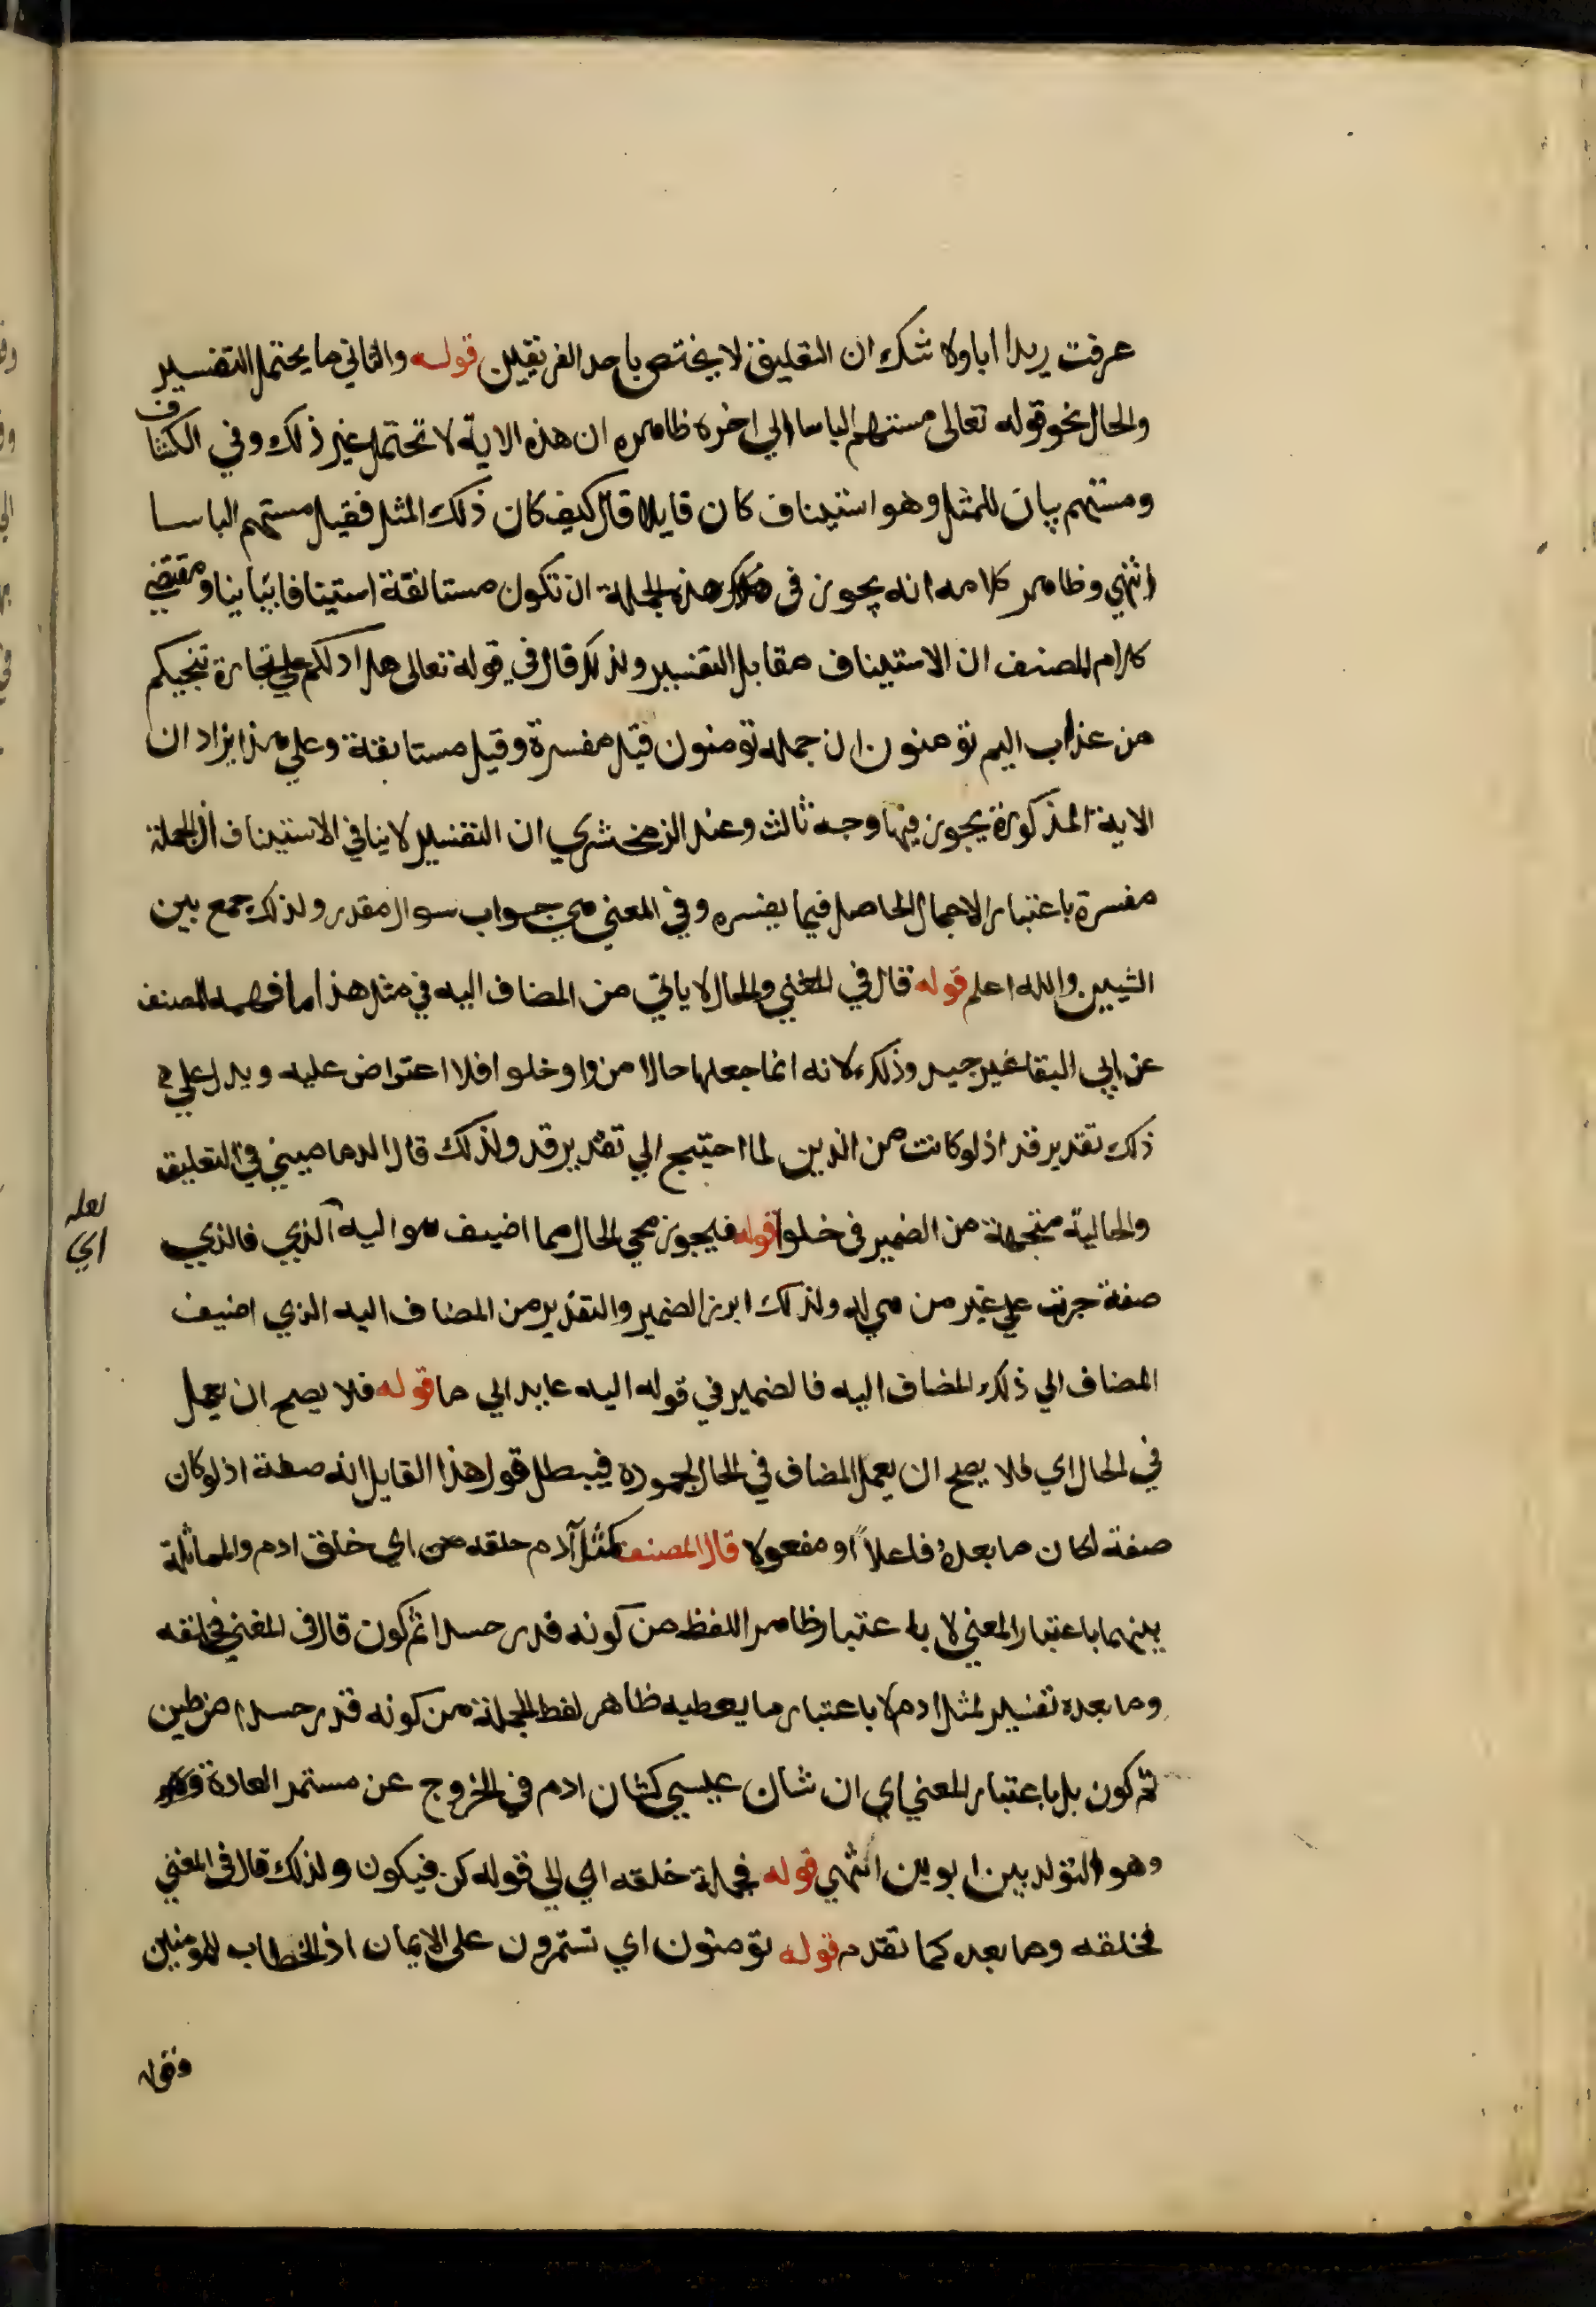 عرفت زيدا اباولا شك ان التعليق لا يختص باحد الفريقين قوله والثاني ما يحتمل التفسير
والحال نحو قوله تعالى مستهم الباسا الي اخره ظاهره ان هذه الاية لا تحتمل غير ذلك وفي الكشاف
ومستهم بيان للمثل وهو استيناف كان قايلا قال كيف كان ذلك المثل فقيل مستهم الباسا
انتهي وظاهر كلامه انه يجوز في هذه الجملة ان تكون مستانفة استينافا بيانيا ومقتضي
كلام المصنف ان الاستيناف مقابل التفسير ولذلك قال في قوله تعالى هل ادلكم علي تجارة تنجيكم
من عذاب اليم تومنون ان جملة تومنون قيل مفسرة وقيل مستانفة وعلي هذا يزاد ان
الاية المذكورة يجوز فيها وجه ثالث وعند الزمخشري ان التفسير لا ينافي الاستيناف اذ الجملة
مفسرة باعتبار الاجمال الحاصل فيما يفسره وفي المعني هي جواب سوال مقدر ولذلك جمع بين
الشيين والله اعلم قوله قال في المغني والحال لا ياتي من المضاف اليه في مثل هذا ما فهمه المصنف
عن ابي البقا غير جيد وذلك لانه انما جعلها حالا من واو خلوا فلا اعتراض عليه ويدل علي
ذلك تقدير قد اذ لو كانت من الذين لما احتيج الي تقدير قد ولذلك قال الدماميني في التعليق
والحالية متجهة من الضمير في خلوا قوله فيجوز مجي الحال مما اضيف هو اليه الذي فالذي
لعله
اي
صفة جرت علي غير من هي له ولذلك ابرز الضمير والتقدير من المضاف اليه الذي اضيف
المضاف الي ذلك المضاف اليه فالضمير في قوله اليه عايد الي ما قوله فلا يصح ان يعمل
في الحال اي فلا يصح ان يعمل المضاف في الحال لجموده فيبطل قول هذا القايل انه صفة اذ لو كان
صفة لكان ما بعده فاعلاً او مفعولا قال المصنف كمثل آدم خلقه من اي خلق ادم والمماثلة
بينهما باعتبار المعني لا باعتبار ظاهر اللفظ من كونه قدر جسدا ثم كون قال في المغني فخلقه
وما بعده تفسير لمثل ادم لا باعتبار ما يعطيه ظاهر لفظ الجملة من كونه قدر جسدا من طين
ثم كون بل باعتبار المعني اي ان شان عيسي كشان ادم في الخروج عن مستمر العادة
وهو التولد بين ابوين انتهي قوله فجملة خلقه اي الي قوله كن فيكون ولذلك قال في المغني
فخلقه وما بعده كما تقدم قوله تومنون اي تستمرون على الايمان اذ الخطاب للمومنين
وقوله